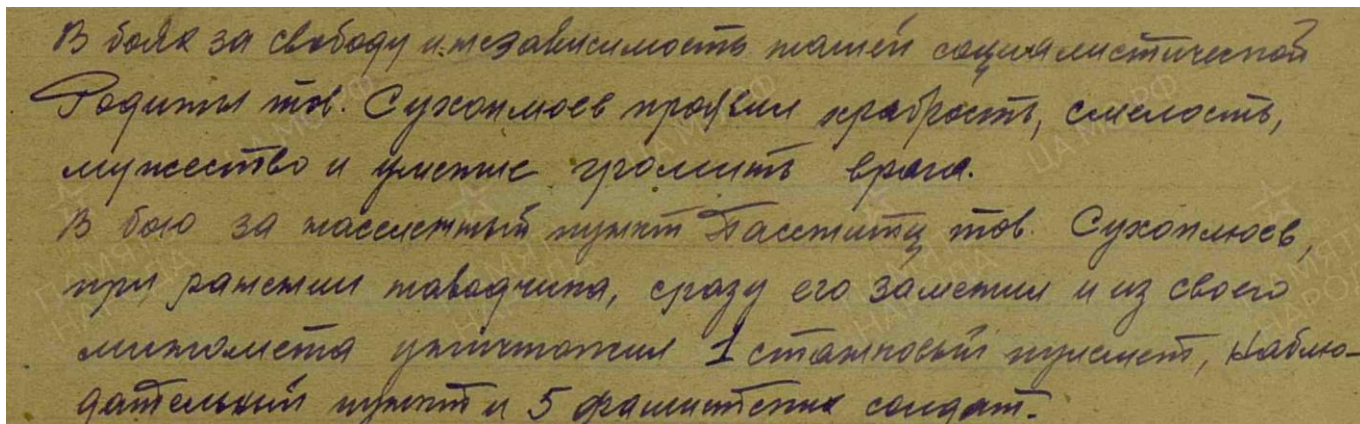 В боях за свободу и независимость нашей социалистической
Родины тов. Сухоплюев проявил храбрость, смелость,
мужество и умение громить врага.
В бою за населенный пункт тов. Сухоплюев,
при ранении наводчика, сразу его заменил и из своего
миномета уничтожил 1 станковый пулемет, наблю-
дательный пункт и 5 фашистских солдат.
ПАМЯТЬ НАРОДА
ЦА МО РФ